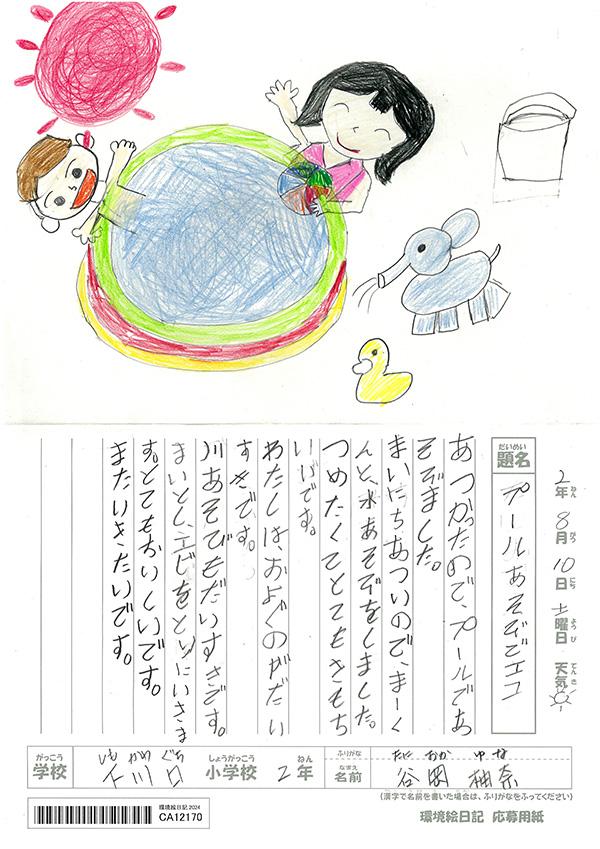 2年8月10日土曜日 天気
ねん がつ にち ようび てんき
だいめい
題名
プールあそびでエコ
あつかったので、プールであ
そびました。
まいにちあついので、まーく
んと、水あそびをしました。
つめたくてとてもきもち
いいです。
わたしは、およぐのがだい
すきです。
川あそびもだいすきです。
まいとし、エビをとりにいきま
す。とてもおいしいです。
またいきたいです。
がっこう
学校
しもかわぐち
下川口
しょうがっこう
小学校
ねん
2年
ふりがな
たにおか ゆな
なまえ
名前
谷岡 柚奈
(漢字で名前を書いた場合は、ふりがなをふってください)
環境絵日記 2024
CA12170
環境絵日記 応募用紙